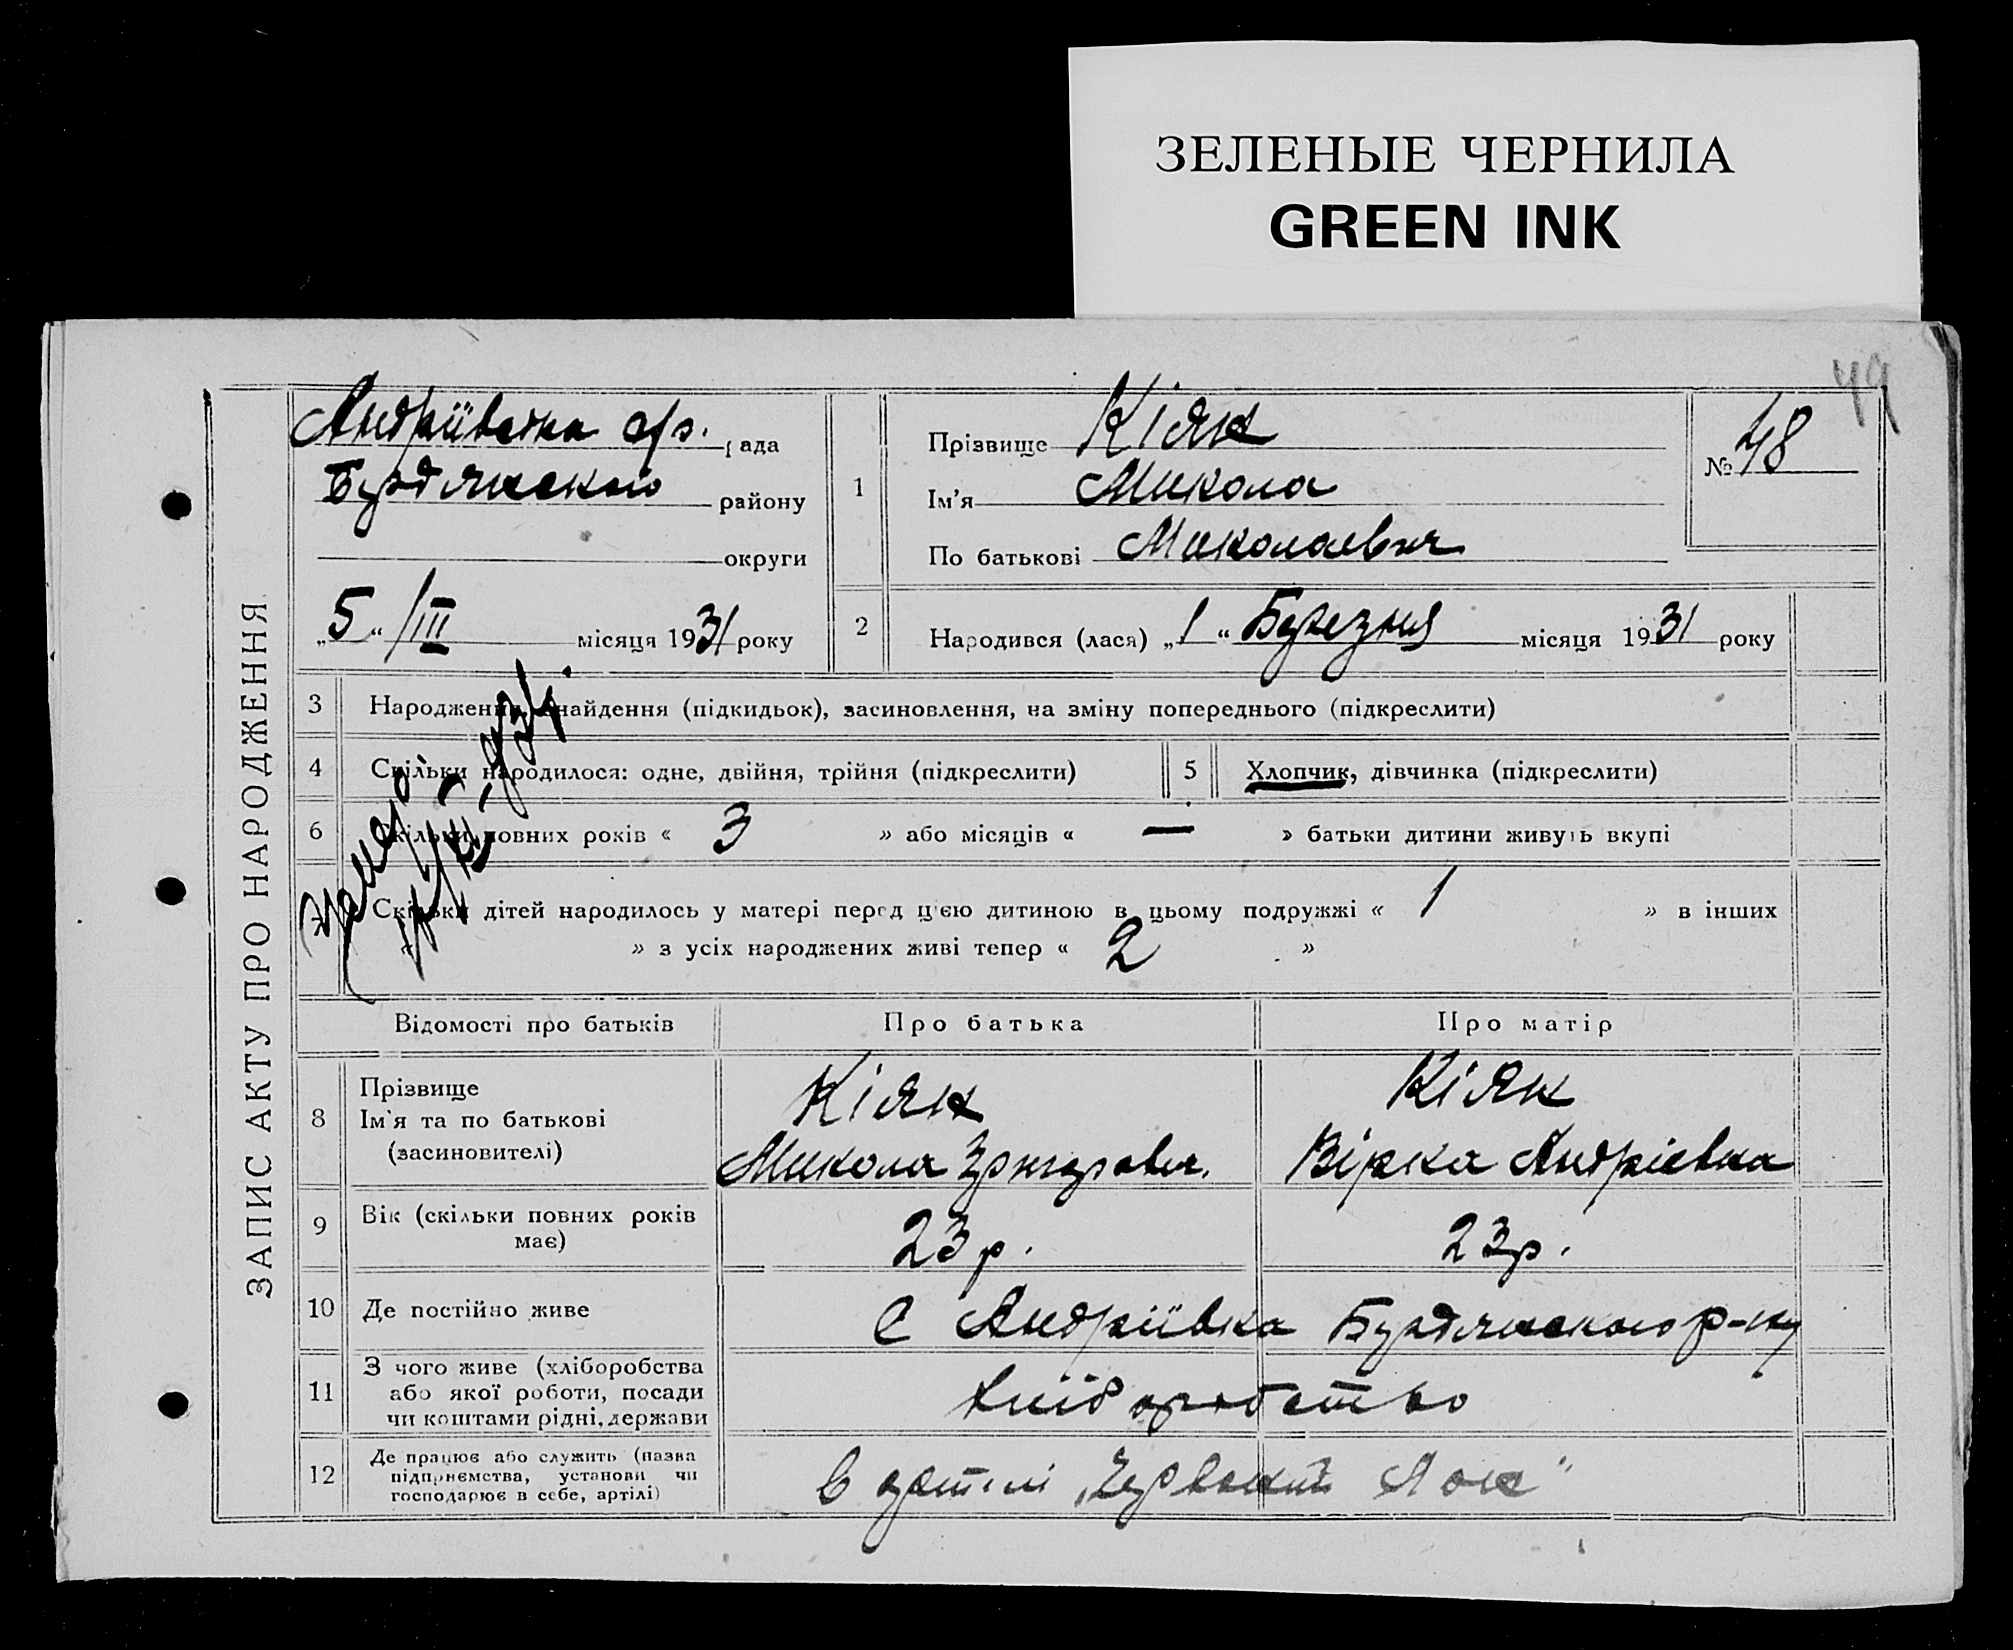 ЗЕЛЕНЫЕ ЧЕРНИЛА
GREEN INK
49
ЗАПИС АКТУ ПРО НАРОДЖЕННЯ
Андріївська с/р. рада
Бердянського району
округи
„5“ /III місяця 1931 року
1
Прізвище Кіяк
Ім'я Микола
По батькові Миколаевич
№ 48
2 Народився (лася) „1“ Березня місяця 1931 року
3 Народження, знайдення (підкидьок), засиновлення, на зміну попереднього (підкреслити)
4 Скільки народилося: одне, двійня, трійня (підкреслити)
5 Хлопчик, дівчинка (підкреслити)
6 Скільки повних років « 3 » або місяців « — » батьки дитини живуть вкупі
7 Скільки дітей народилось у матері перед цією дитиною в цьому подружжі « 1 » в інших
» з усіх народжених живі тепер « 2 »
Відомості про батьків Про батька Про матір
8 Прізвище
Ім'я та по батькові
(засиновителі)
Кіяк
Микола Григорович.
Кіяк
Вірка Андріевна
9 Вік (скільки повних років
має)
23 р. 23 р.
10 Де постійно живе С Андріївка Бердянського р-ну
11 З чого живе (хліборобства
або якої роботи, посади
чи коштами рідні, держави
Хліборобство
12 Де працює або служить (назва
підприємства, установи чи
господарює в себе, артілі)
в артілі „Червоний